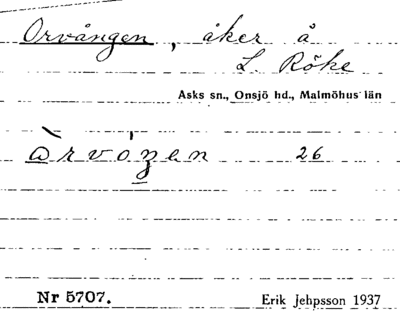 Orvången, åker å
L. Röke
Asks sn., Onsjö hd., Malmöhus län
26
Nr 5707.
Erik Jehpsson 1937